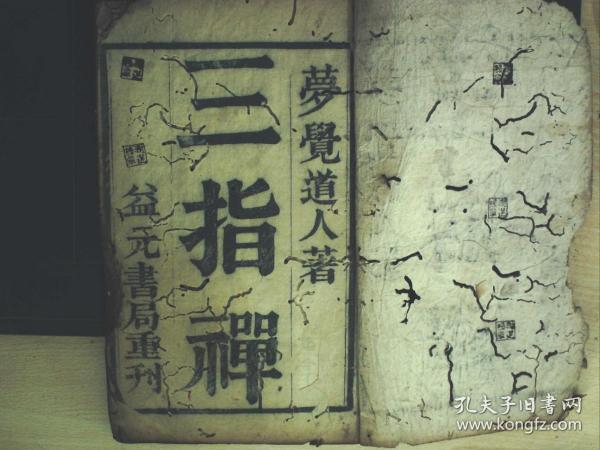 夢覺道人著
三指禪
益元書局重刊
孔夫子旧書网
www.kongfz.com